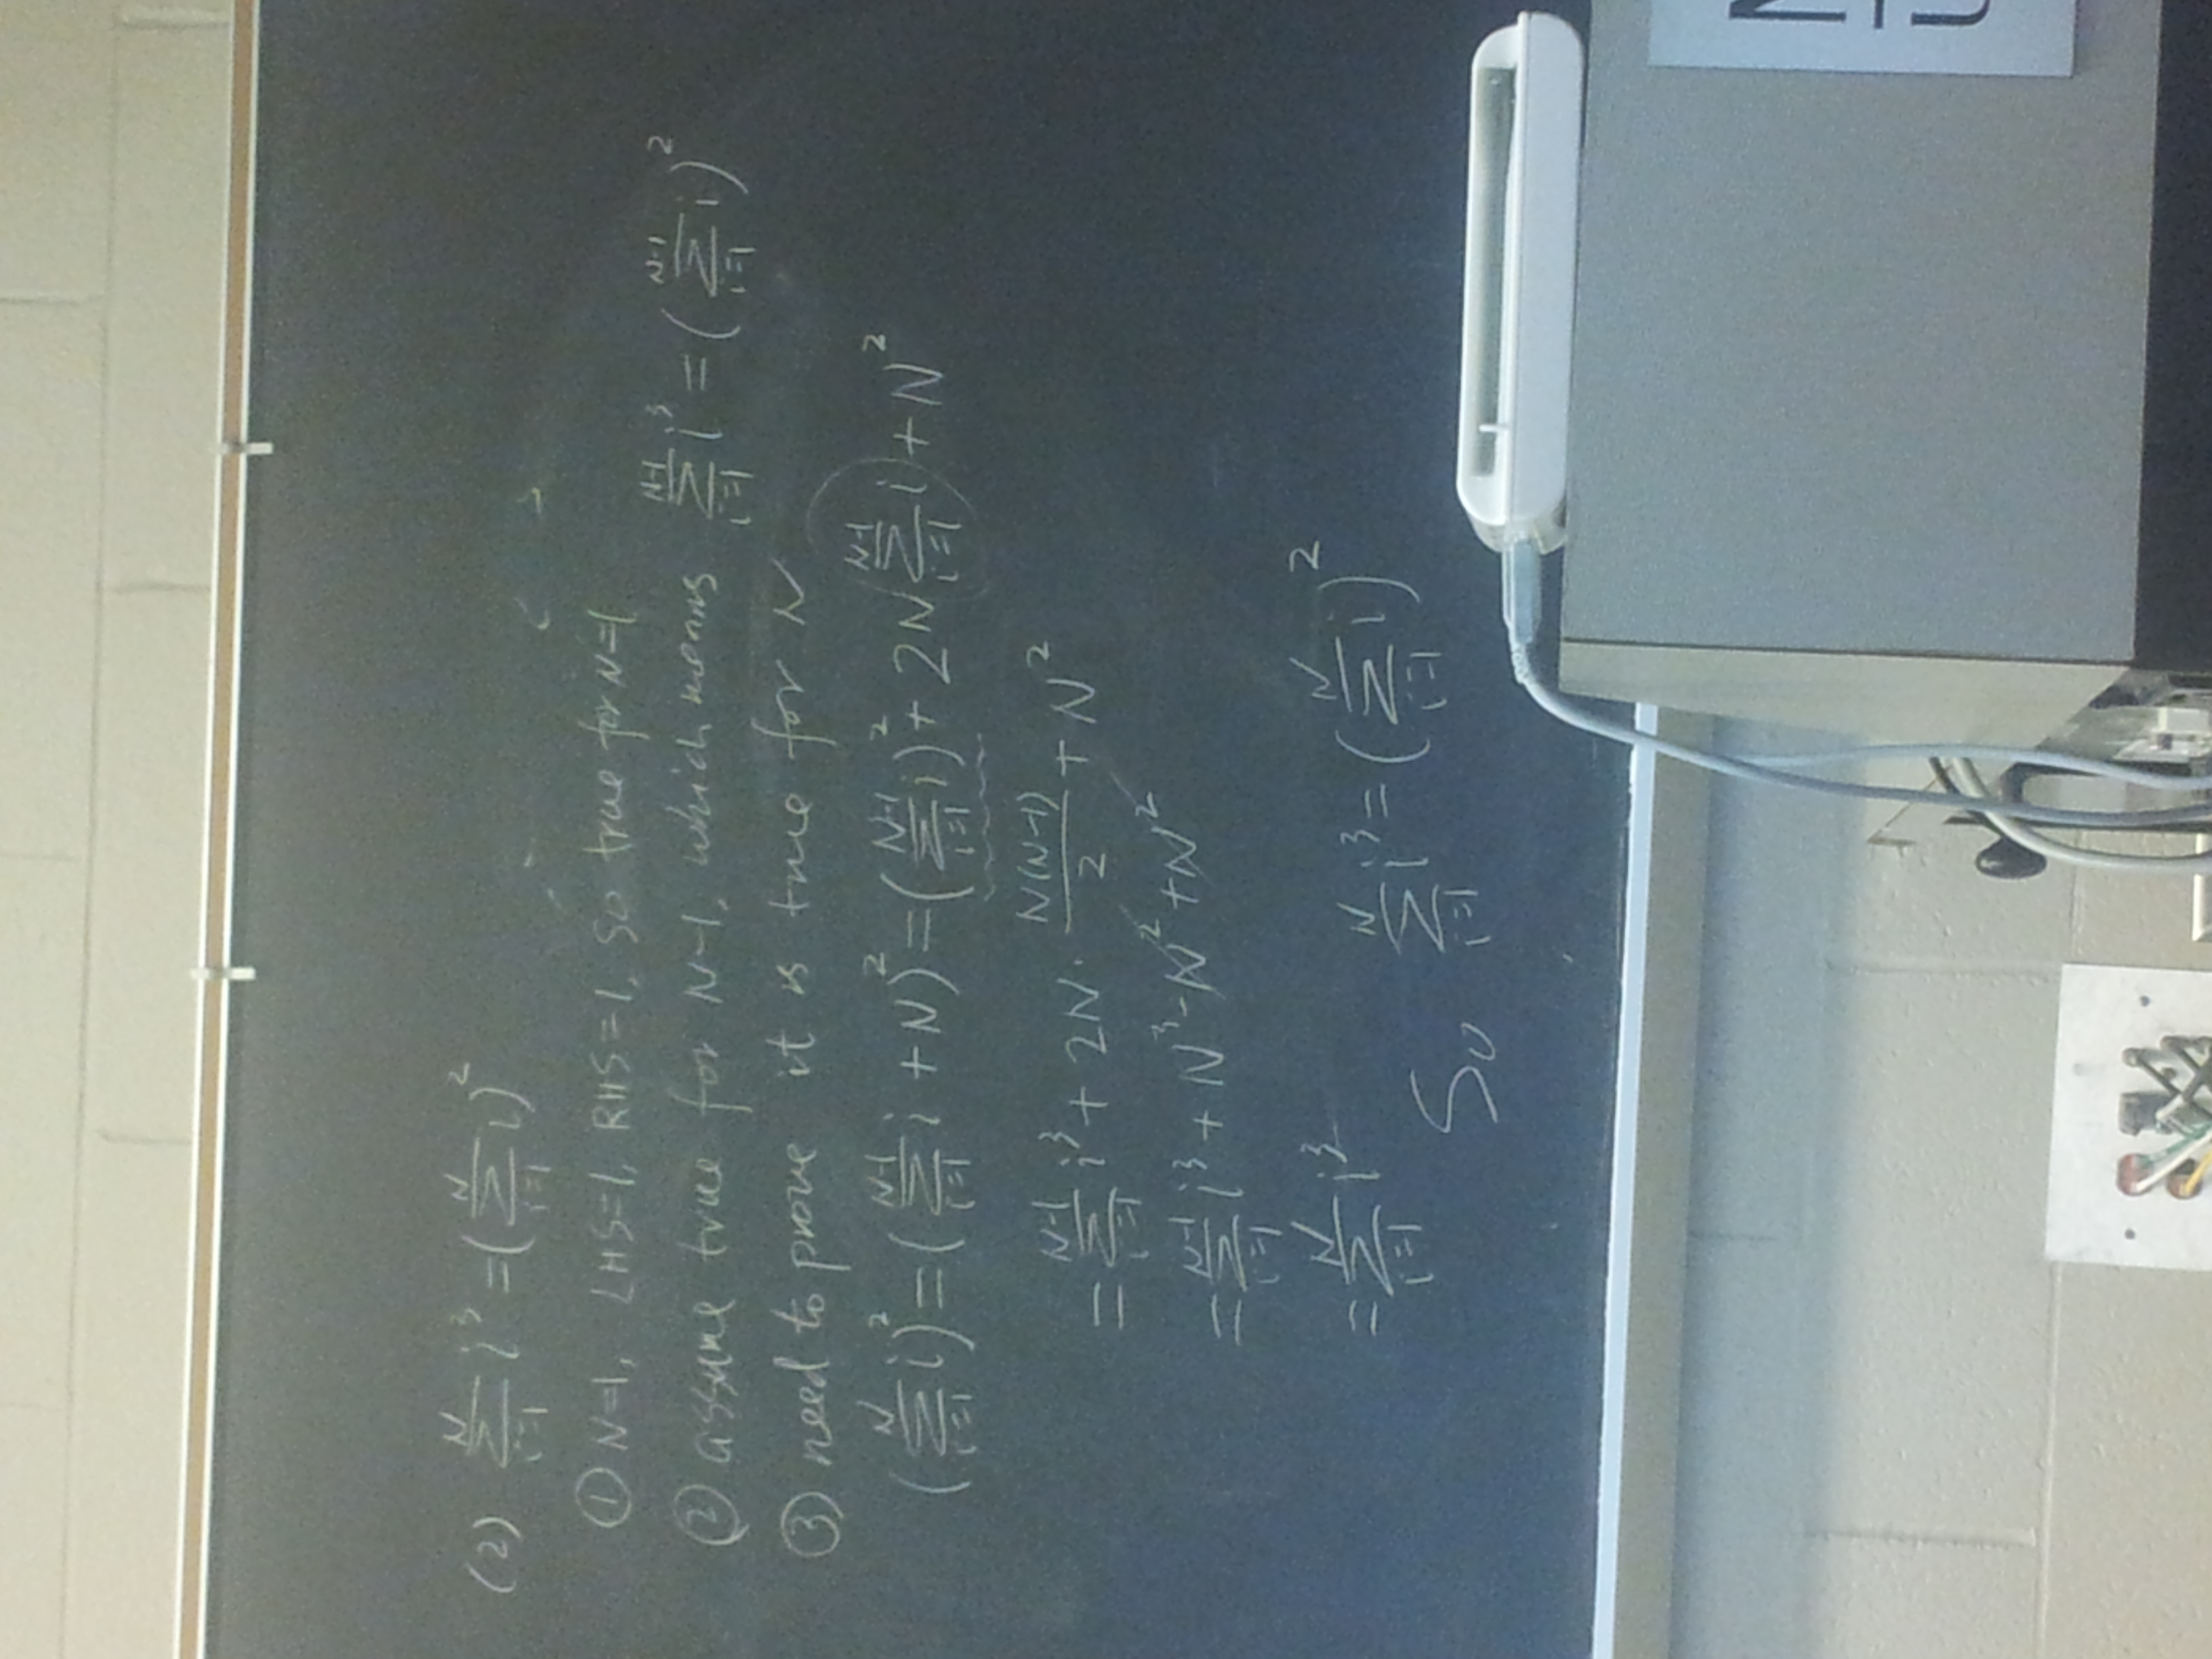 (2) $\sum_{i=1}^{N} i^3 = \left(\sum_{i=1}^{N} i\right)^2$
① N=1, LHS=1, RHS=1, so true for N=1
② assume true for N-1, which means $\sum_{i=1}^{N-1} i^3 = \left(\sum_{i=1}^{N-1} i\right)^2$
③ need to prove it is true for N
$\left(\sum_{i=1}^{N} i\right)^2 = \left(\sum_{i=1}^{N-1} i + N\right)^2 = \left(\sum_{i=1}^{N-1} i\right)^2 + 2N \sum_{i=1}^{N-1} i + N^2$
$= \sum_{i=1}^{N-1} i^3 + 2N \cdot \frac{N(N-1)}{2} + N^2$
$= \sum_{i=1}^{N-1} i^3 + N^3 - N^2 + N^2$
$= \sum_{i=1}^{N} i^3$
So $\sum_{i=1}^{N} i^3 = \left(\sum_{i=1}^{N} i\right)^2$